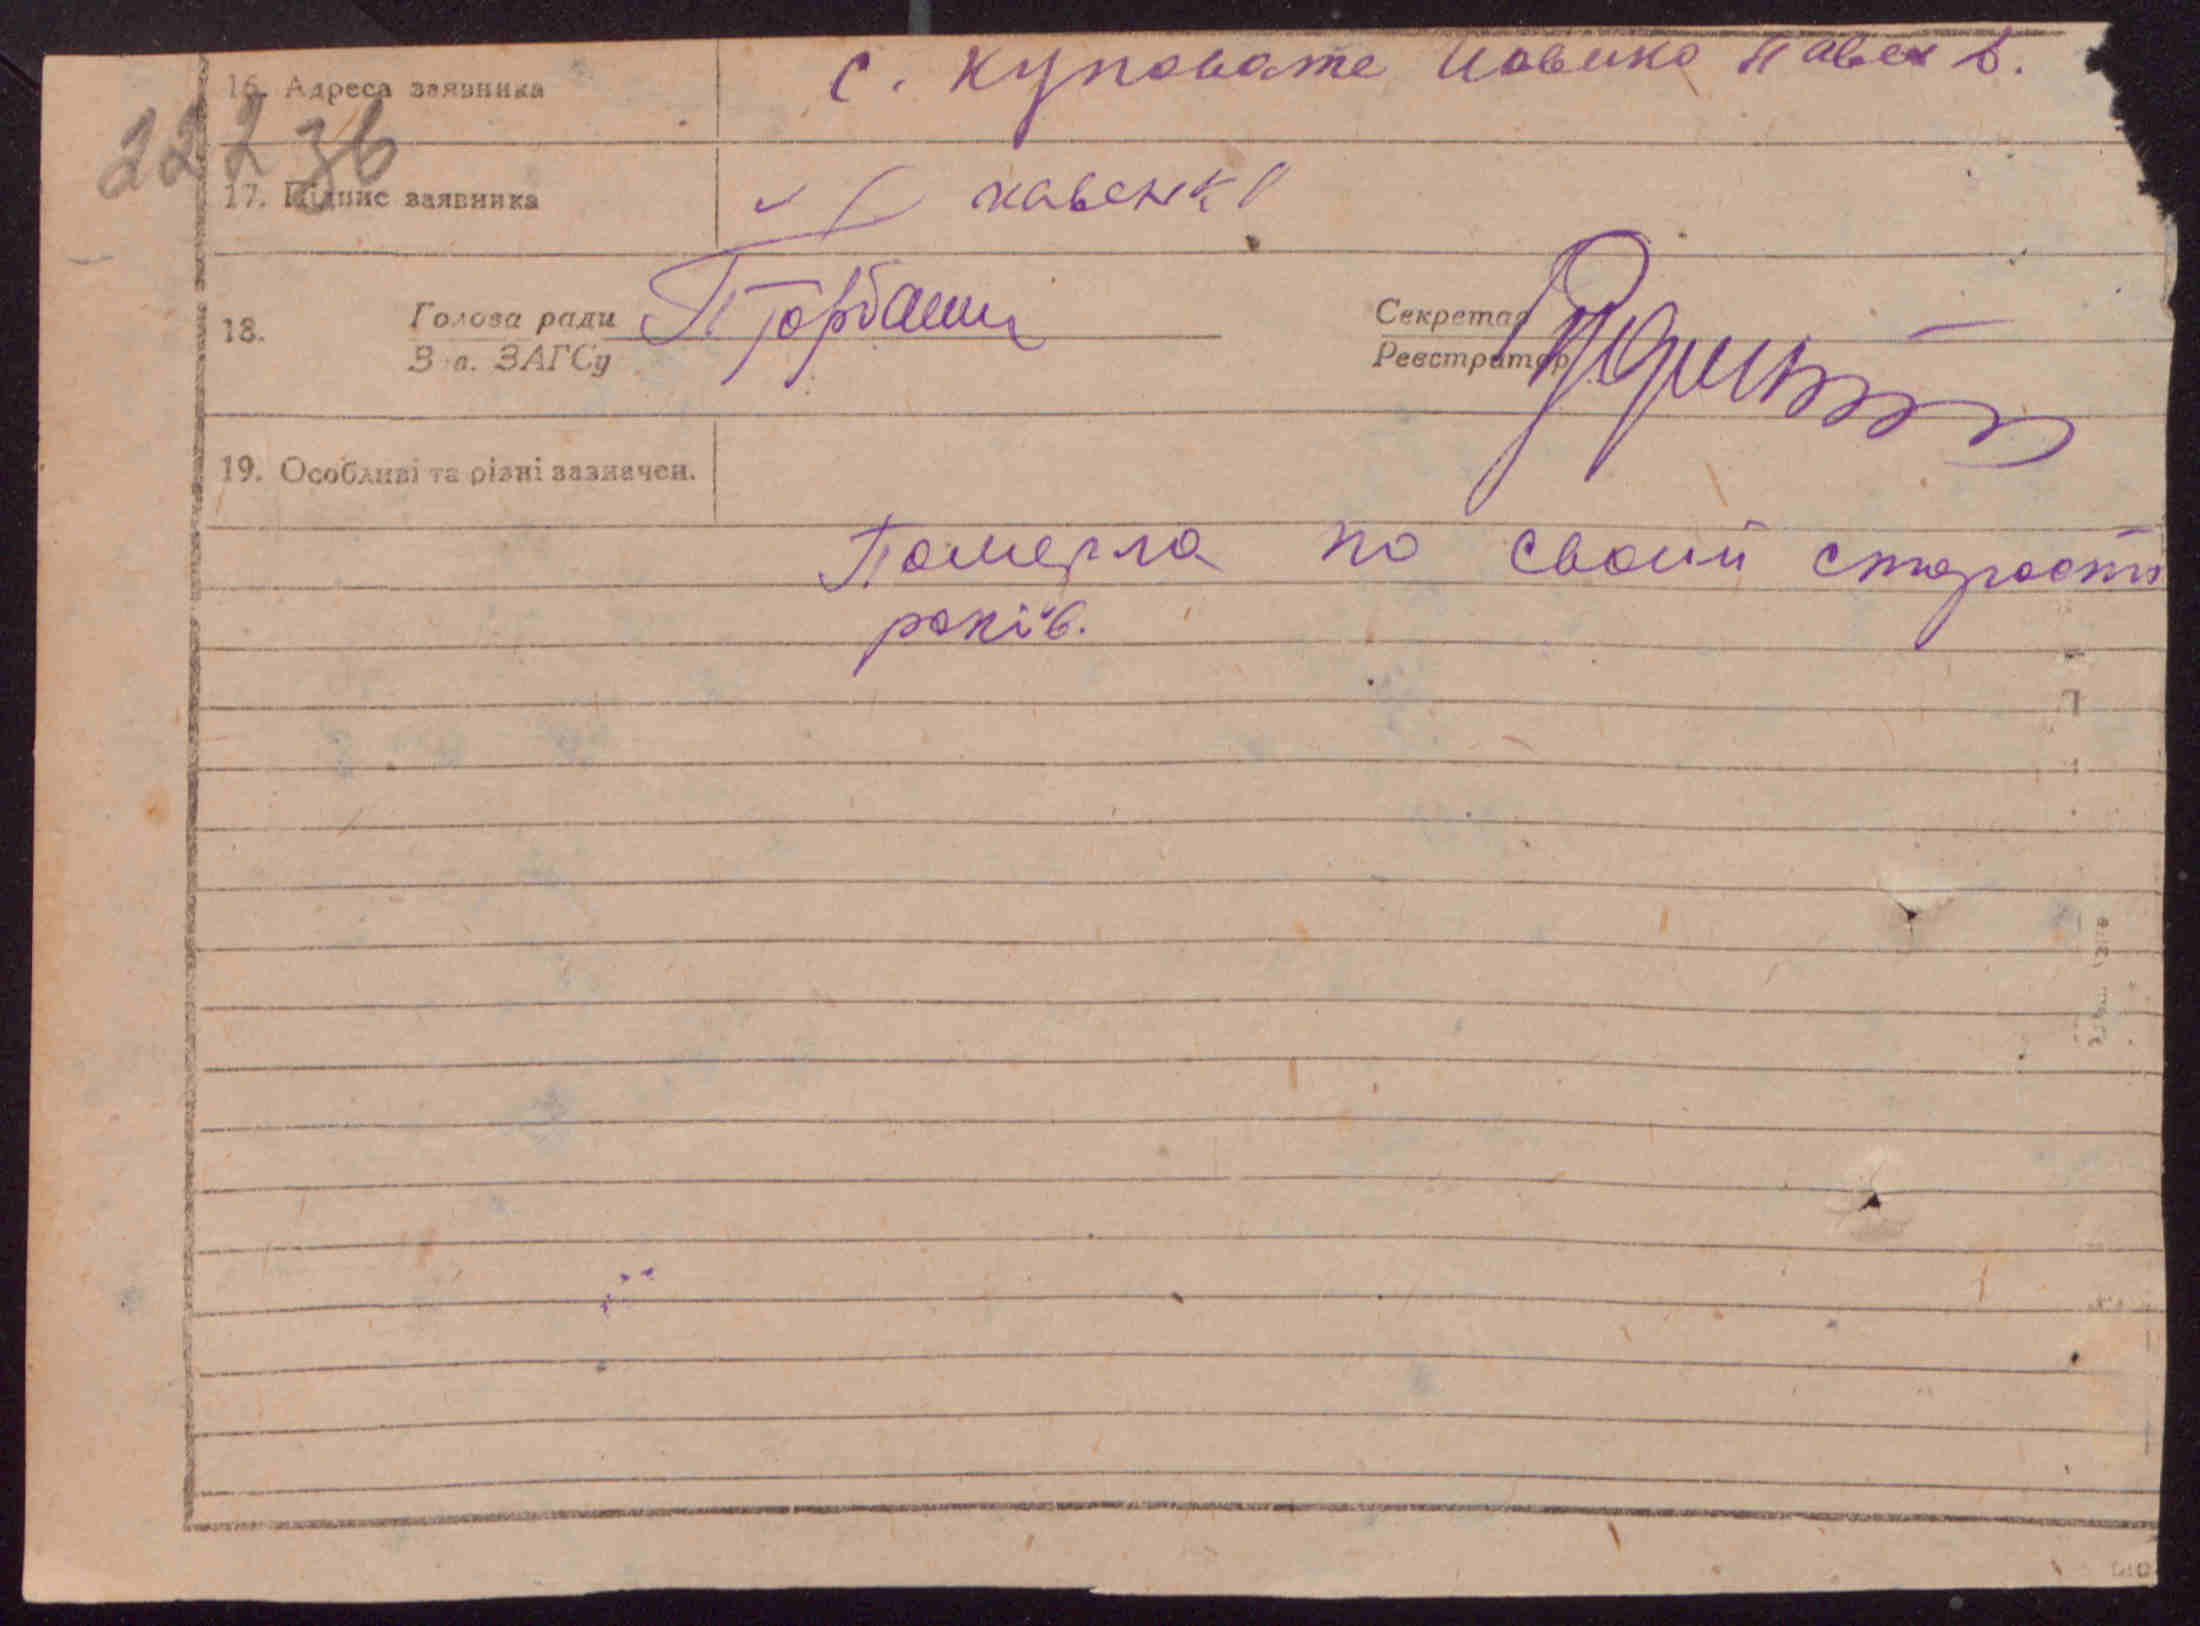 16. Адреса заявника с. Куповате Йовенко Павел В.
22236
17. Підпис заявника Йовенко
18. Голова ради
В. о. ЗАГСу
Секретар
Реєстратор
19. Особливі та різні зазначен.
Померла по своій старости
років.